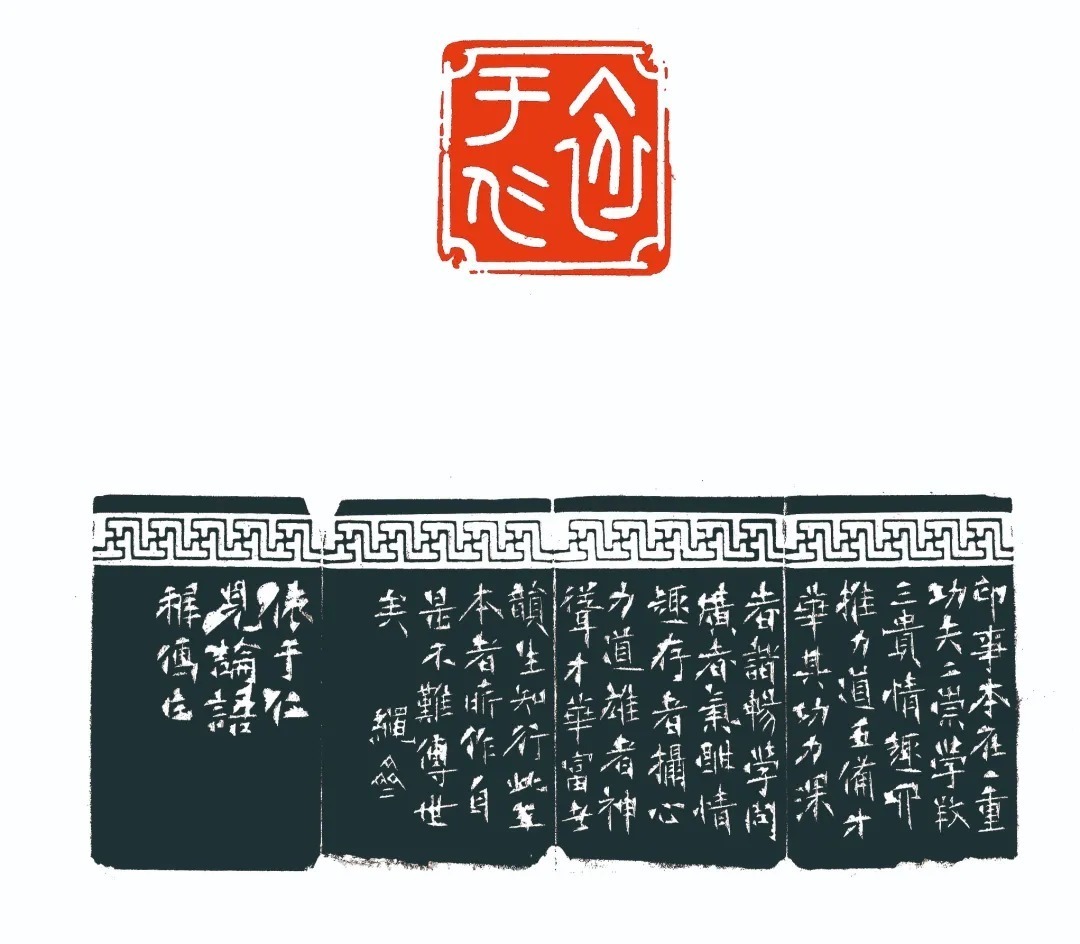 依于仁
印事本在一重
功夫二崇學
三貴情趣四
推力道五備才
華其功力深
者諧暢學問
廣者氣酣情
趣存者攝心
力道雄者神
聳才華富者
韻生知行此五
本者所作自
是不難傳世
矣 繩齋
依于仁
見論語